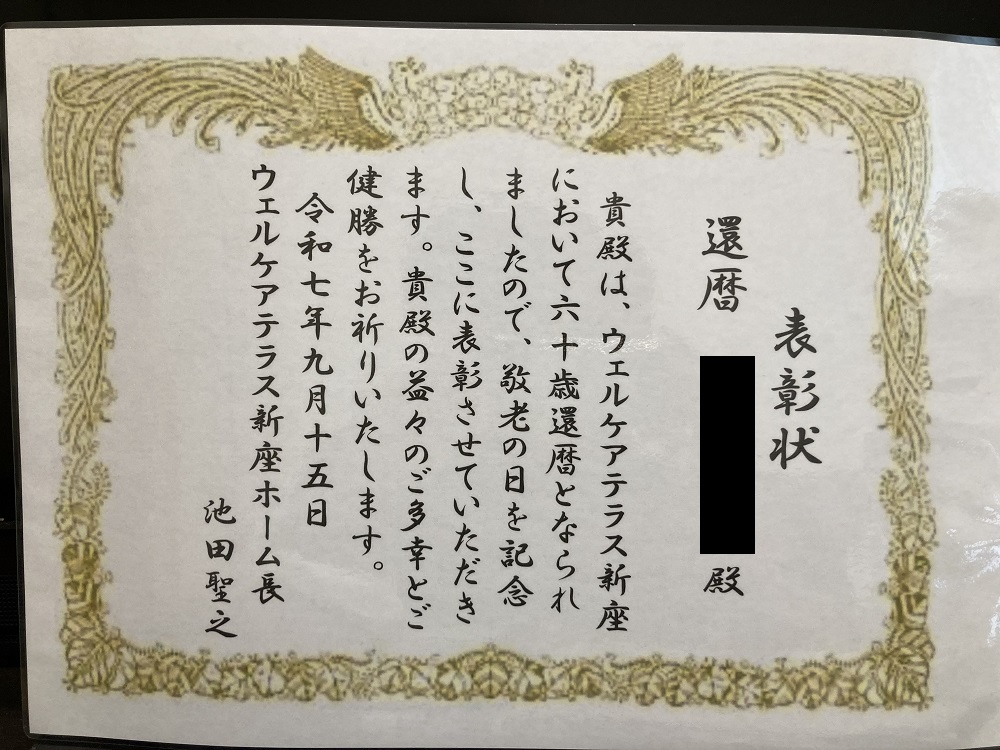 表彰状
還暦 殿
貴殿は、ウェルケアテラス新座
において六十歳還暦となられ
ましたので、敬老の日を記念
し、ここに表彰させていただき
ます。貴殿の益々のご多幸とご
健勝をお祈りいたします。
令和七年九月十五日
ウェルケアテラス新座ホーム長
池田聖之